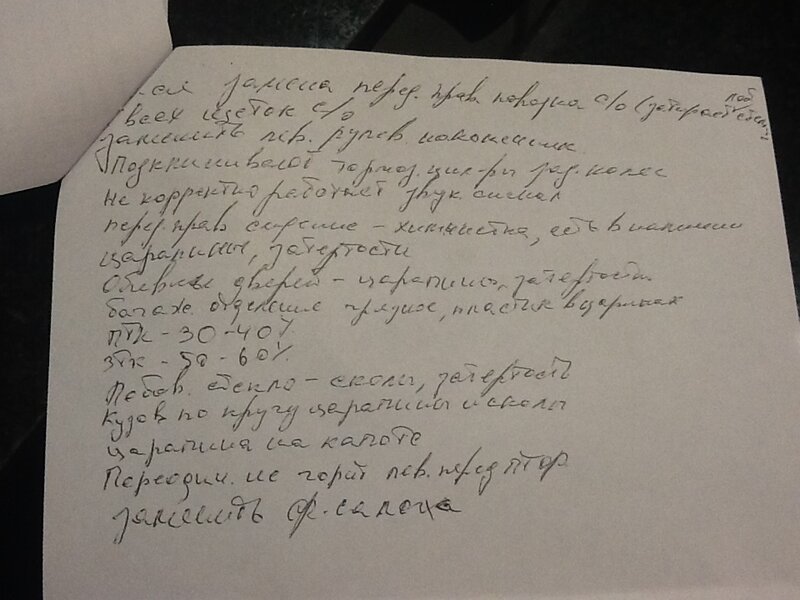 замена перед. прав. поводка с/о (затирает стек
лоб
всех щеток с/о
заменить лев. рулев. наконечник
Подклинивают тормоз. цил-ры зад. колес
Не корректно работает звук. сигнал
перед. прав сидение - химчистка, есть в наличии
царапины, затертости
Обивки дверей - царапины, затертости
багаж. отделение грязное, пластик в царапинах
ПТК - 30-40%
ЗТК - 50-60%
Лобов. стекло - сколы, затертость
Кузов по кругу царапины и сколы
царапина на капоте
Переодич. не горит лев. перед ПТФ
заменить ф. салона